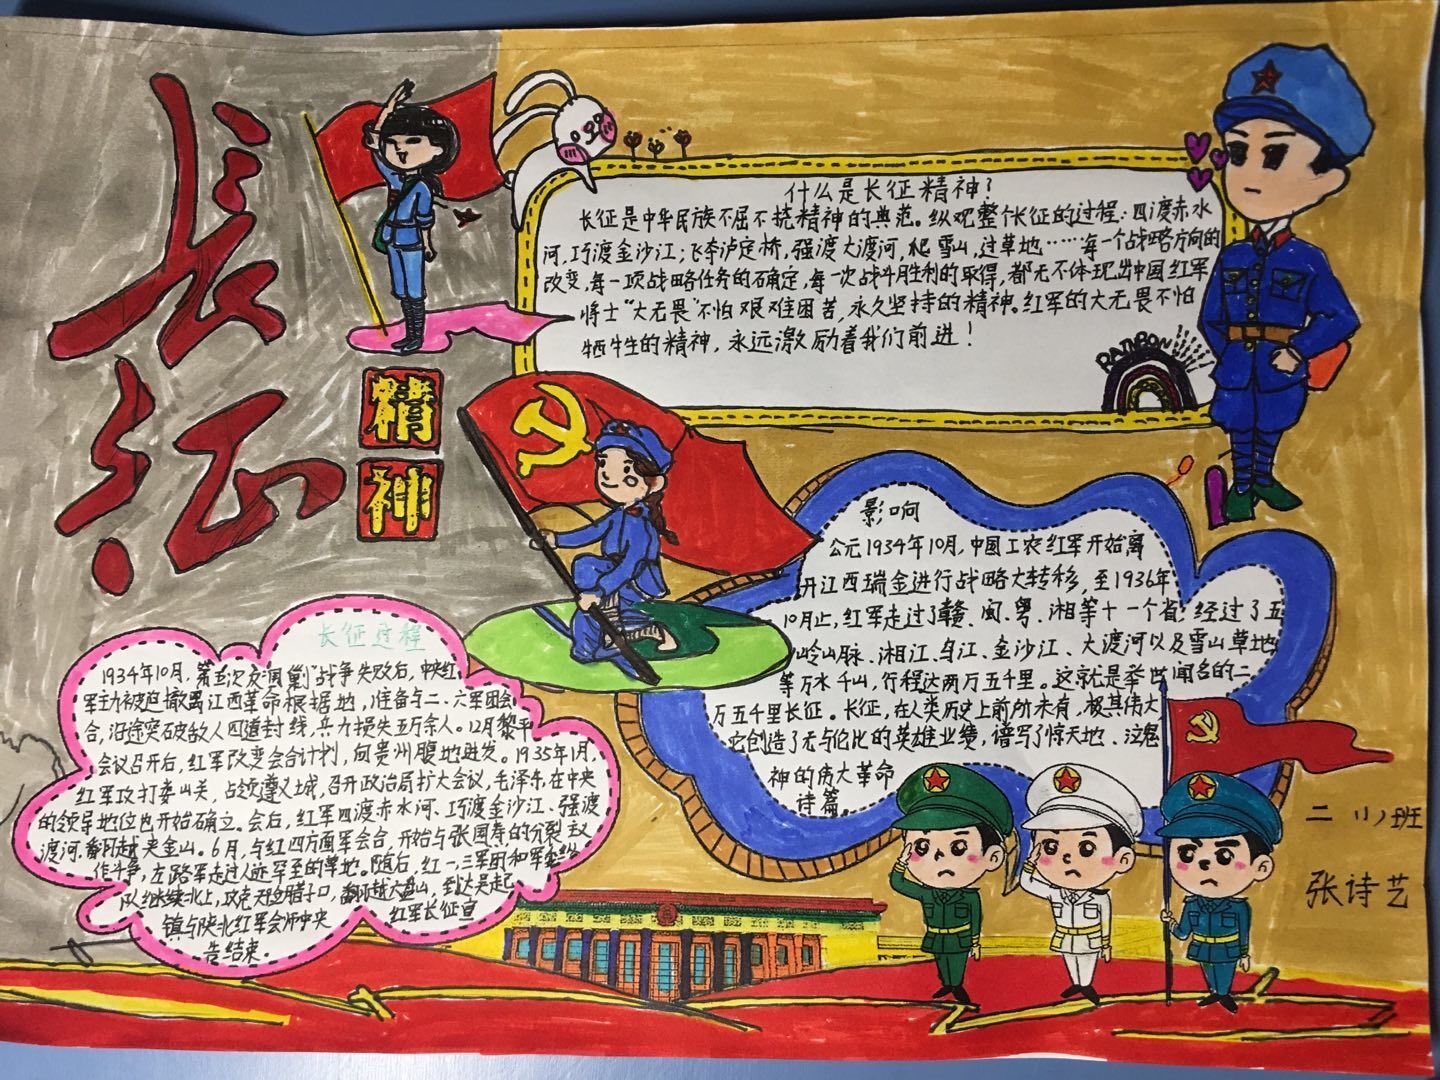 长征
精神
什么是长征精神?
长征是中华民族不屈不挠精神的典范。纵观整个长征的过程:四渡赤水
河,巧渡金沙江;飞夺泸定桥,强渡大渡河,爬雪山,过草地……每一个战略方向的
改变,每一项战略任务的确定,每一次战斗胜利的取得,都无不体现出中国红军
将士“大无畏”不怕艰难困苦,永久坚持的精神。红军的大无畏不怕
牺牲的精神,永远激励着我们前进!
影响
公元1934年10月,中国工农红军开始离
开江西瑞金进行战略大转移,至1936年
10月止,红军走过了赣、闽、粤、湘等十一个省;经过了五
岭山脉、湘江、乌江、金沙江、大渡河以及雪山草地,
等万水千山,行程达两万五千里。这就是举世闻名的二
万五千里长征。长征,在人类历史上前所未有,极其伟大
它创造了无与伦比的英雄业绩,谱写了惊天地、泣鬼
神的伟大革命
诗篇。
长征过程
1934年10月,第五次反“围剿”战争失败后,中央红
军主力被迫撤离江西革命根据地,准备与二、六军团会
合,沿途突破敌人四道封线,兵力损失五万余人。12月黎平
会议召开后,红军改变会合计划,向贵州腹地进发。1935年1月,
红军攻打娄山关,占领遵义城,召开政治局扩大会议,毛泽东在中央
的领导地位也开始确立。会后,红军四渡赤水河、巧渡金沙江、强渡
渡河、翻越夹金山。6月,与红四方面军会合,开始与张国焘的分裂主义
作斗争,左路军走过人迹罕至的草地。随后,红一,三军团和军委纵
队继续北上,攻克天险腊子口,翻越六盘山,到达吴起
镇与陕北红军会师中央 红军长征宣
告结束。
二(1)班
张诗艺